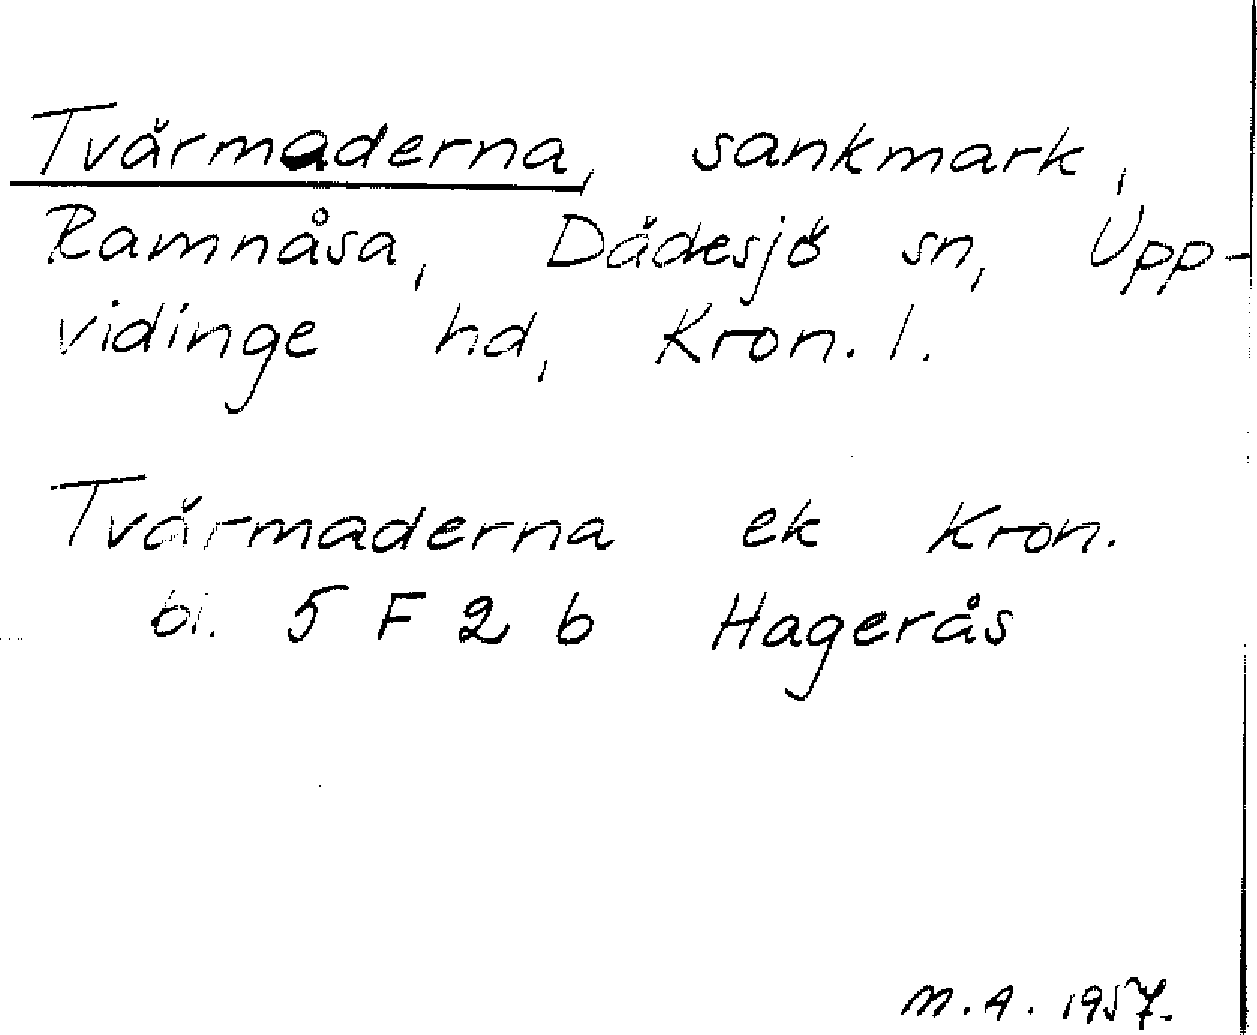 Tvärmaderna, sankmark,
Ramnåsa, Dädesjö sn, Upp-
vidinge hd, Kron. l.
Tvärmaderna ek Kron.
bl. 5 F 2 b Hagerås
M.A. 1957.